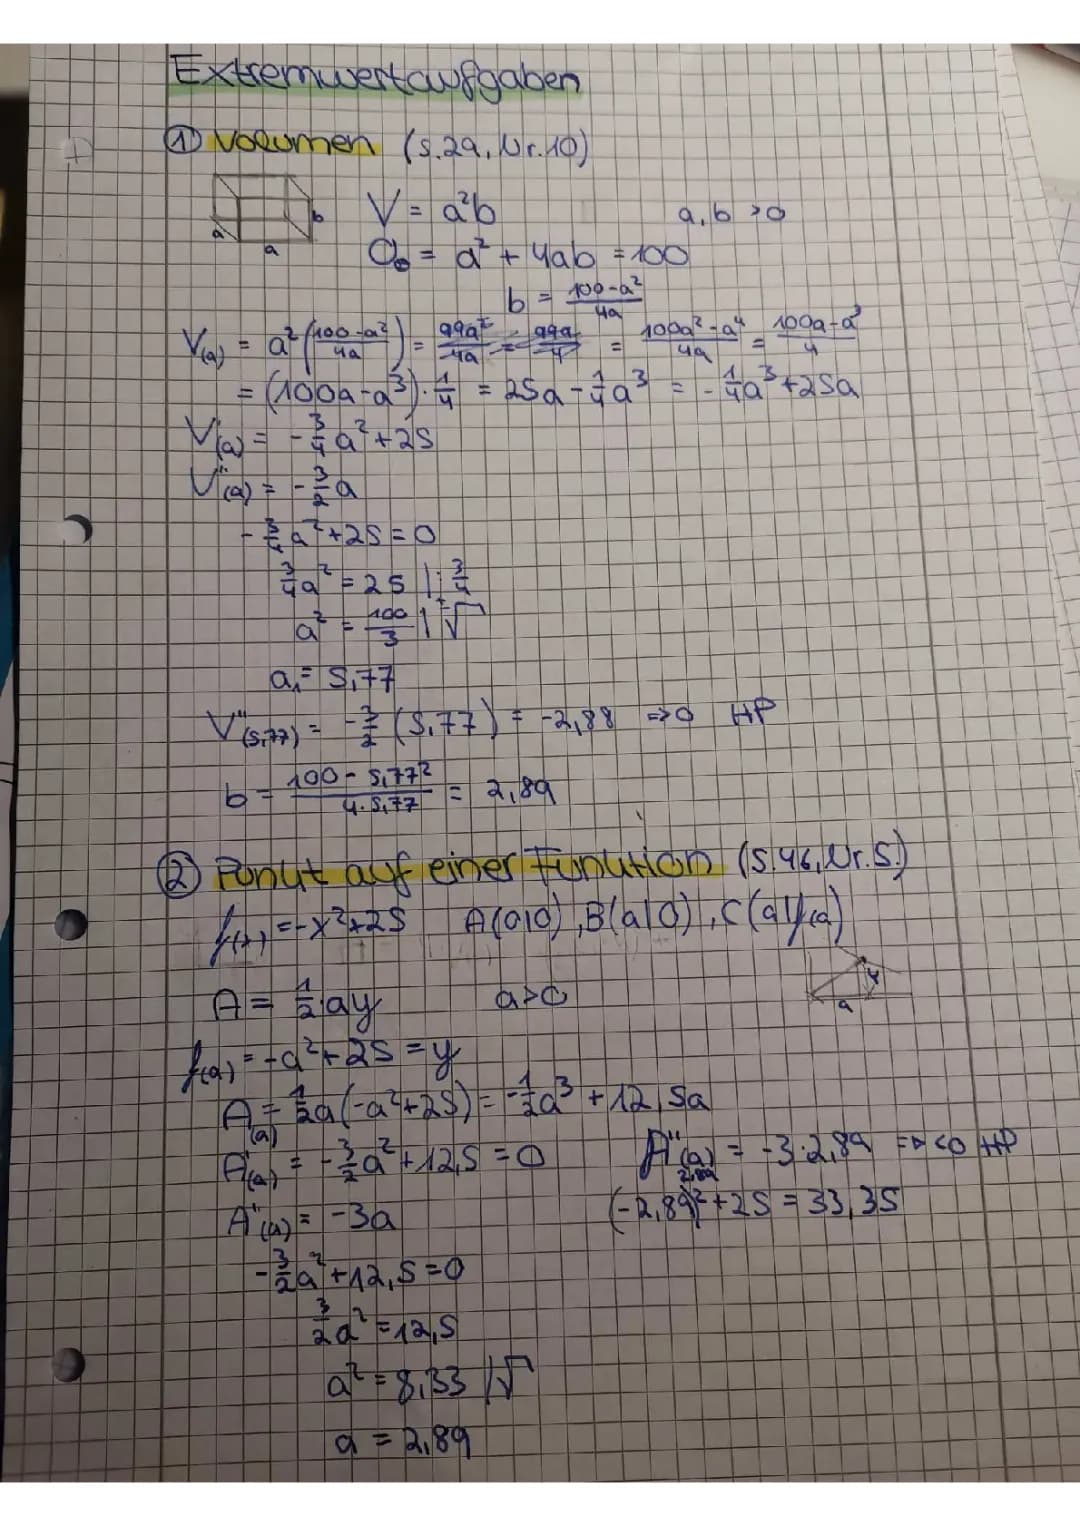 Extremwertaufgaben
① Volumen (S.29, Nr.10)
a a b
V = a²b a, b >0
O = a² + 4ab = 100
b = (100-a²)/4a
V(a) = a² (100-a²/4a) = 99a²/4a = 99a/4 = 100a²-a⁴/4a = 100a-a³/4
= (100a-a³)·1/4 = 25a - 1/4a³ = -1/4a³+25a
V'(a) = -3/4a²+25
V"(a) = -3/2a
-3/4a²+25=0
3/4a² = 25 |:3/4
a² = 100/3 |√
a₁= 5,77
V"(5,77) = -3/2 (5,77) = -2,88 =>0 HP
b = 100-5,77²/4·5,77 = 2,89
② Punkt auf einer Funktion (S.46, Nr.5.)
f(x) = -x²+25 A(0|0), B(a|0), C(a|f(a)
A = 1/2ay a>0
a y
f(a) = -a²+25 = y
A(a) = 1/2a(-a²+25) = -1/2a³ + 12,5a
A'(a) = -3/2a²+12,5 = 0 A"(a) = -3·2,89 => <0 HP
2,89
A"(a) = -3a (-2,89)²+25 = 33,35
-3/2a²+12,5=0
3/2a²=12,5
a² = 8,33 |√
a = 2,89